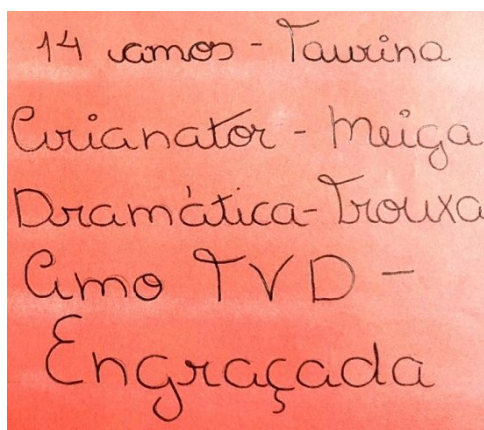 14 anos - Taurina
Arianator - Meiga
Dramática - Trouxa
Amo TVD -
Engraçada